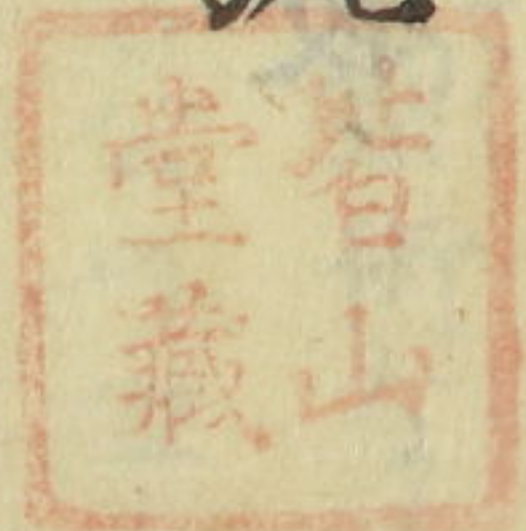 皆山
堂藏